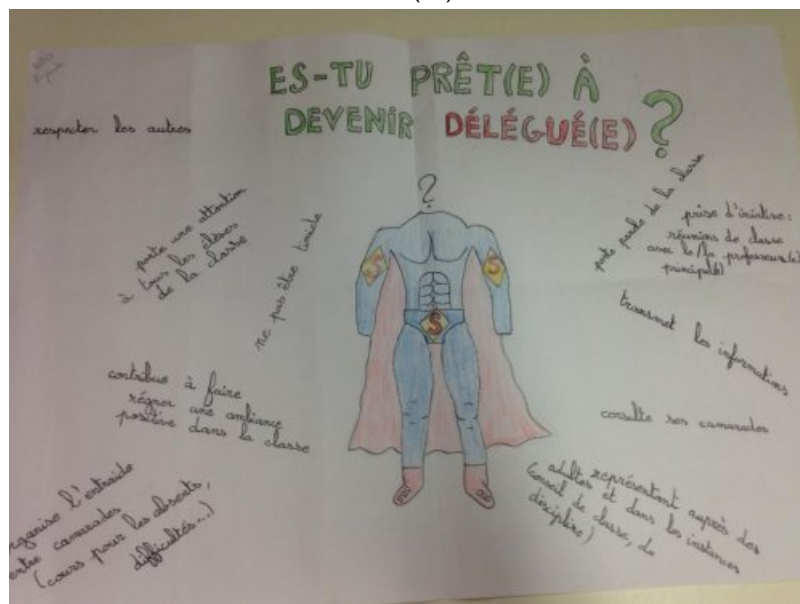 ES-TU PRÊT(E) À
DEVENIR DÉLÉGUÉ(E) ?
respecter les autres
?
porte une attention
à tous les élèves
de la classe
ne pas être timide
contribue à faire
régner une ambiance
positive dans la classe
organise l'entraide
entre camarades
(cours pour les absents,
difficultés...)
S
S
S
porte parole de la classe
prise d'iniative :
réunions de classe
avec le/la professeur(e)
principal(e)
transmet les informations
consulte ses camarades
représentant auprès des
adultes et dans les instances
(conseil de classe, de
discipline)